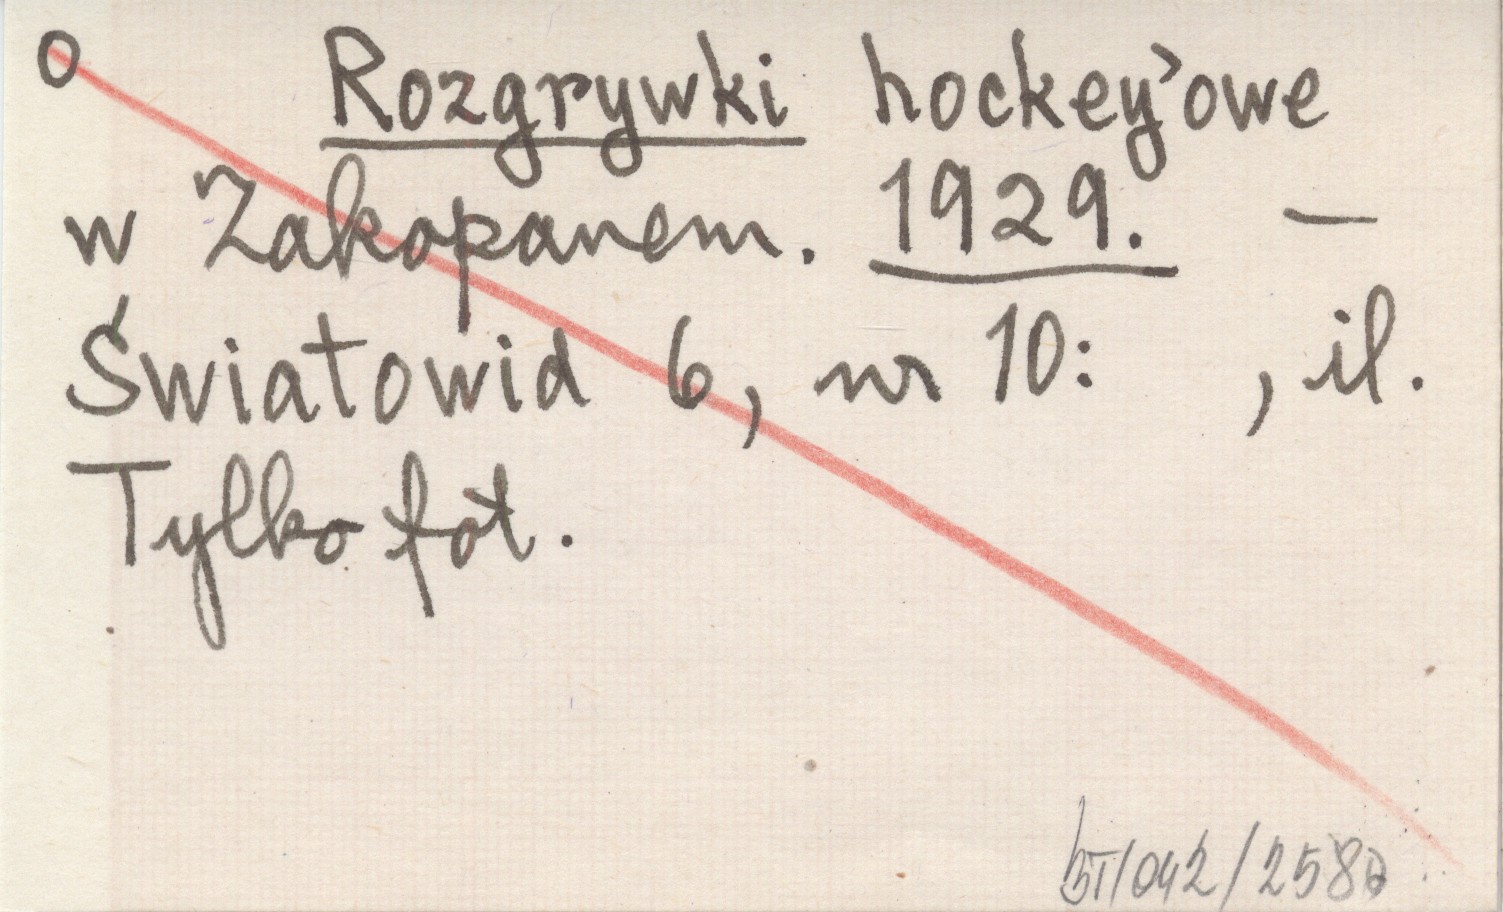 o Rozgrywki hockey'owe
w Zakopanem. 1929. —
Światowid 6, nr 10: , il.
Tylko fot.
BT/042/2580